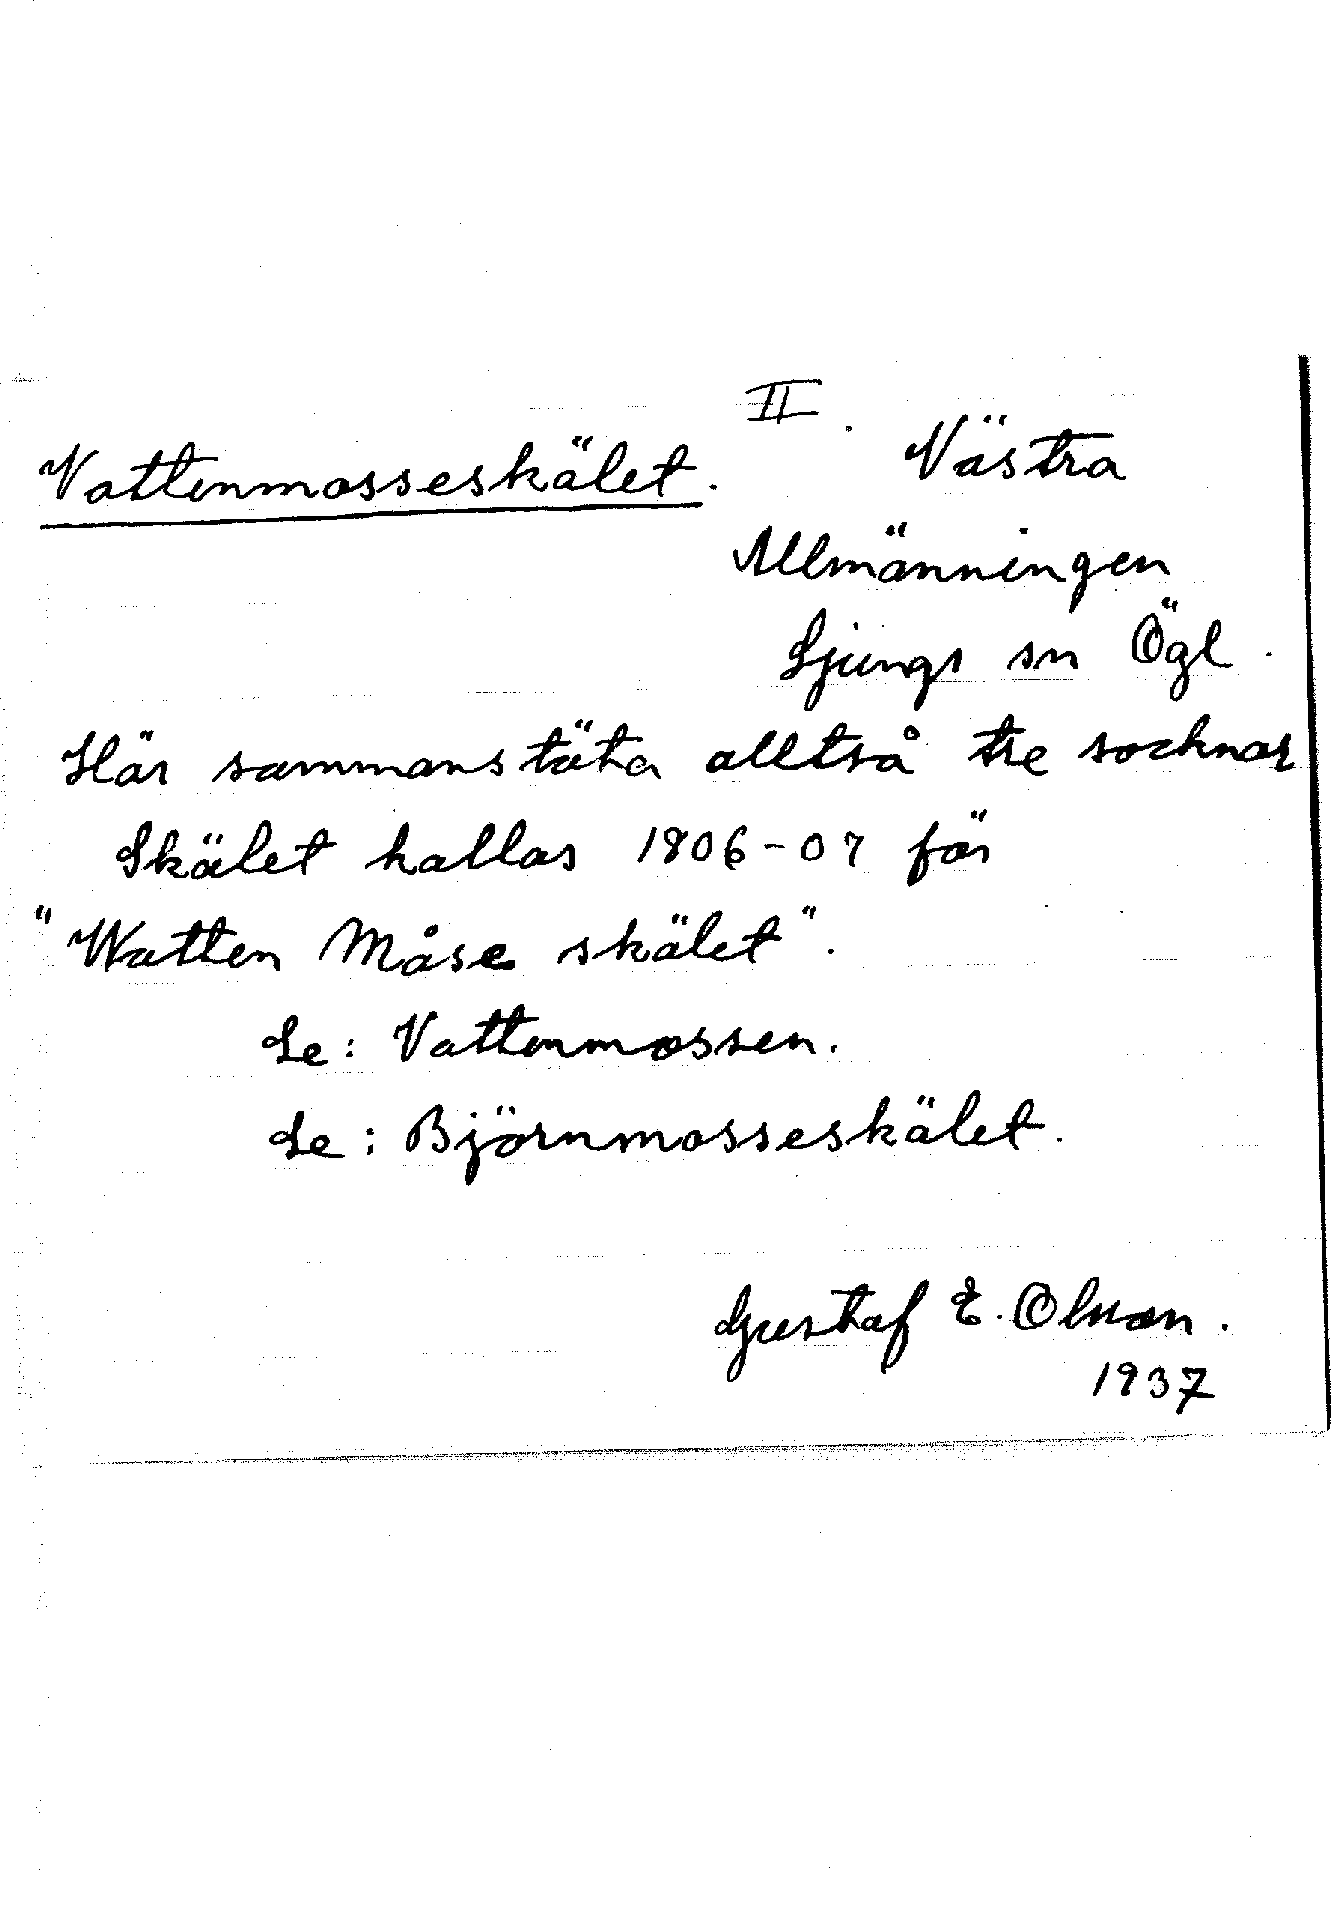 II.
Vattenmosseskälet. Västra
Allmänningen
Ljungs sn Ögl.
Här sammanstöta alltså tre socknar
Skälet kallas 1806-07 för
"Watten Måse skälet".
Se: Vattenmossen.
Se: Björnmosseskälet.
Gustaf E. Olsson.
1937